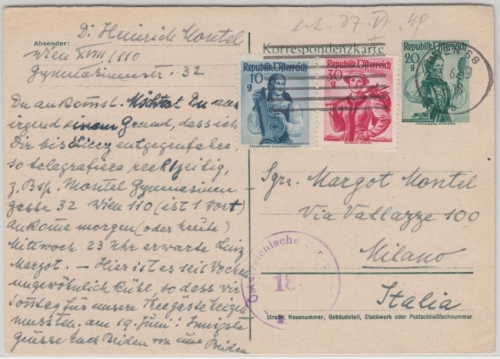 erh. 27. VI. 49
Dr. Heinrich Montel
Absender:
Wien XVIII/110
Gymnasiumstr. 32
Korrespondenzkarte
Republik Österreich
10 g
Republik Österreich
30 g
Republik Österreich
20 g
Du ankomst.
irgend einem Grund, dass ich
Dir bis Linz entgegenfahre,
so telegrafiere rechtzeitig,
z. Bsp. Montel Gymnasium
gasse 32 Wien 110 (ist 1 Wort)
ankome morgen (oder heute)
Mittwoch 23 Uhr erwarte Linz
Margot. – Hier ist es seit Wochen
ungewöhnlich kühl, so dass wir
Sonntag für unsere
mussten. am 19. Juni! Innigste
Grüsse Euch Beiden von uns Beiden
Sgra. Margot Montel
Via Vallazze 100
Milano
Italia
Österreichische
18
Straße, Hausnummer, Gebäudeteil, Stockwerk oder Postschließfachnummer